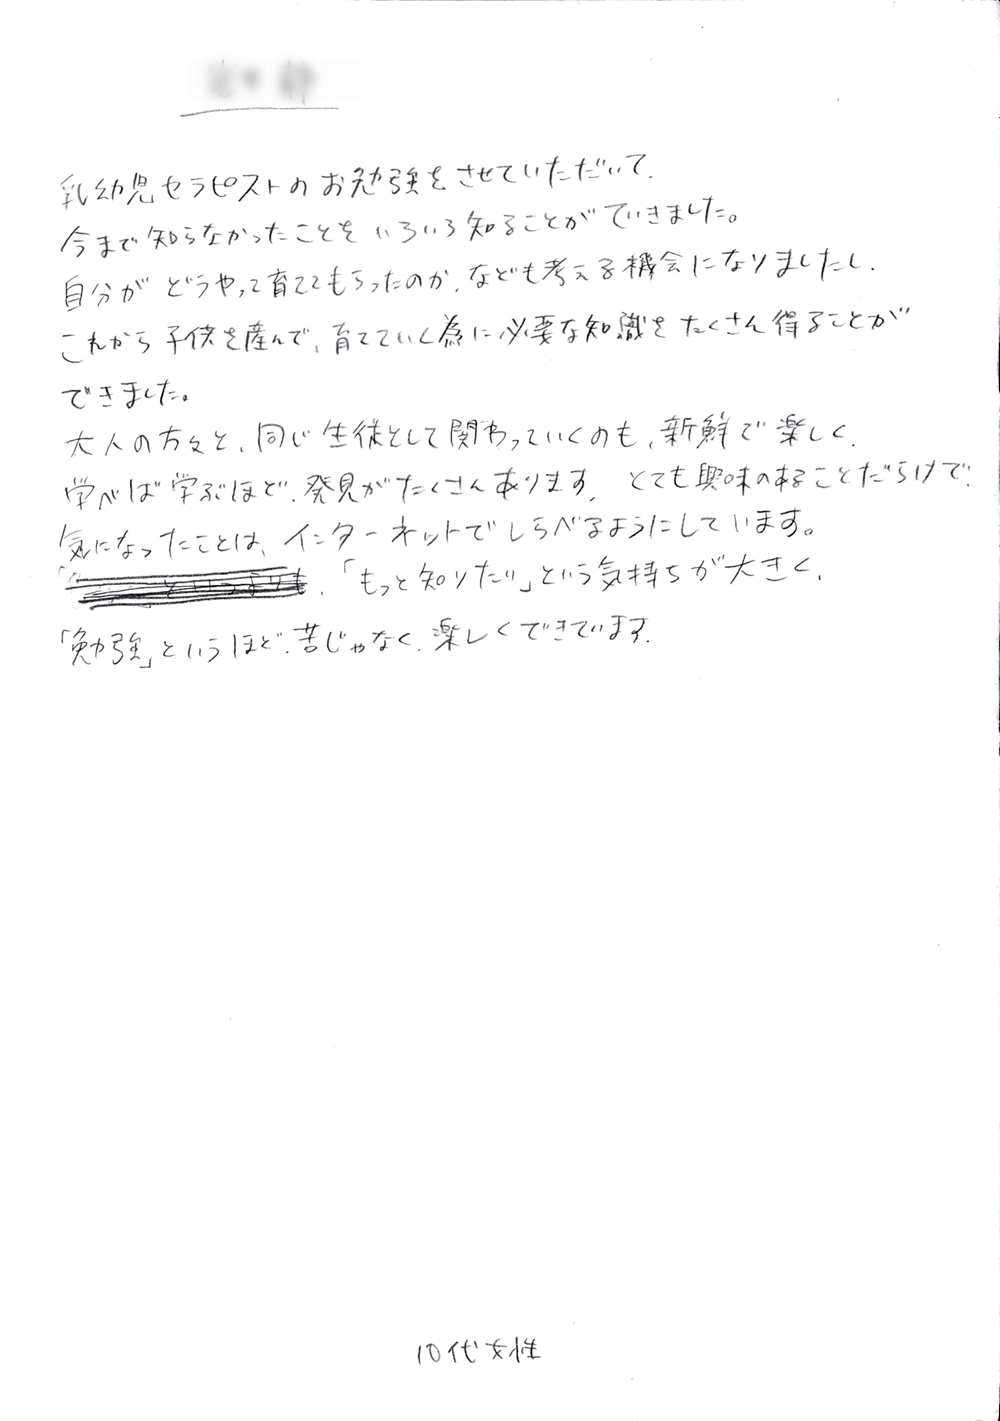 乳幼児セラピストのお勉強をさせていただいて、
今まで知らなかったことをいろいろ知ることができました。
自分がどうやって育ててもらったのか、なども考える機会になりましたし、
これから子供を産んで、育てていく為に必要な知識をたくさん得ることが
できました。
大人の方々と、同じ生徒として関わっていくのも、新鮮で楽しく、
学べば学ぶほど、発見がたくさんあります。とても興味のあることだらけで、
気になったことは、インターネットでしらべるようにしています。
「もっと知りたい」という気持ちが大きく、
「勉強」というほど、苦じゃなく、楽しくできています。
10代女性